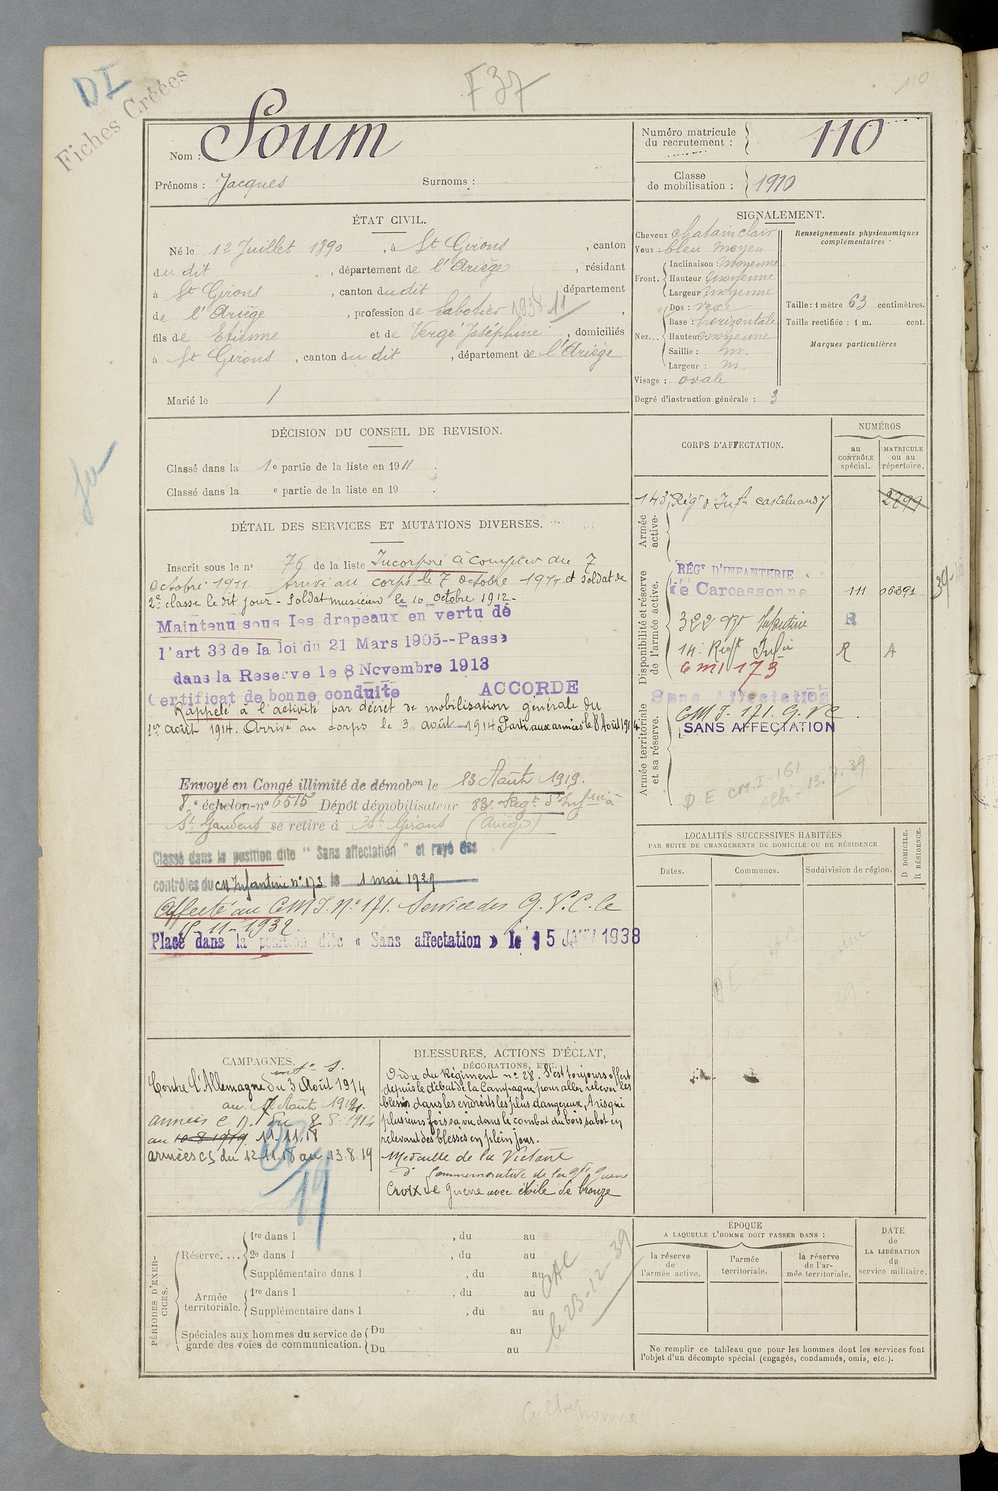 DI
Fiches Créées
F37
110
Nom : Soum
Prénoms : Jacques Surnoms :
Numéro matricule du recrutement : 110
Classe de mobilisation : 1910
ÉTAT CIVIL.
Né le 12 Juillet 1890, à St Girons, canton
du dit, département de l'Ariège, résidant
à St Girons, canton du dit département
de l'Ariège, profession de Sabotier 1938 11
fils de Etienne et de Vergé Joséphine, domiciliés
à St Girons, canton du dit, département de l'Ariège
Marié le /
SIGNALEMENT.
Cheveux chatain clair
Yeux bleu moyen
Front : Inclinaison moyenne
Hauteur moyenne
Largeur moyenne
Nez... Dos :
Base : horizontale
Hauteur moyenne
Saillie : m.
Largeur : m.
Visage : ovale
Degré d'instruction générale : 3
Renseignements physionomiques complémentaires :
Taille : 1 mètre 63 centimètres.
Taille rectifiée : 1 m. cent.
Marques particulières
DÉCISION DU CONSEIL DE REVISION.
Classé dans la 1e partie de la liste en 1911.
Classé dans la e partie de la liste en 19 .
DÉTAIL DES SERVICES ET MUTATIONS DIVERSES.
Inscrit sous le n° 76 de la liste Incorporé à compter du 7
Octobre 1911 Arrivé au corps le 7 Octobre 1911 et soldat de
2e classe le dit jour - Soldat musicien le 10 octobre 1912 -
Maintenu sous les drapeaux en vertu de
l'art 33 de la loi du 21 Mars 1905--Passé
dans la Reserve le 8 Novembre 1913
Certificat de bonne conduite ACCORDE
Rappelé à l'activité par décret de mobilisation générale du
1er août 1914. Arrivé au corps le 3 août 1914 Parti aux armées le 8 Août 1914
Envoyé en Congé illimité de démobon le 13 Août 1919.
8e échelon-n° 6515 Dépôt démobilisateur 83e Regt d'Infrie à
St Gaudens se retire à St Girons (Ariège)
Classé dans la position dite " Sans affectation " et rayé des
contrôles du CM Infanterie n° 173 le 1 mai 1929
Affecté au C.M.I. N° 171. Service des G.V.C. le
15-11-1932.
Placé dans la position dite « Sans affectation » le 15 JANV 1938
CORPS D'AFFECTATION.
NUMÉROS
au CONTRÔLE spécial.
MATRICULE ou au répertoire.
Armée active.
143e Régt d'Inft Castelnaudy 2799
Disponibilité et réserve de l'armée active.
RÉGt D'INFANTERIE
de Carcassonne 111 06391
322 Rgt Infanterie R
14e Regt Infie R A
C m I 173
Sans Affectation
Armée territoriale et sa réserve.
CM I. 171. G.V.C.
SANS AFFECTATION
D E CM.I-161
Albi - 13.7.39
LOCALITÉS SUCCESSIVES HABITÉES
PAR SUITE DE CHANGEMENTS DE DOMICILE OU DE RÉSIDENCE
Dates.
Communes.
Subdivision de région.
D DOMICILE.
R RÉSIDENCE.
CAMPAGNES.
Contre l'Allemagne du 3 Août 1914
au 7 Août 1914.
armées C D. du 8-8-1914
au 10-8-1919 11-11.18
armées CS du 12.11.18 au 13.8.19
19
BLESSURES, ACTIONS D'ÉCLAT,
DÉCORATIONS, ETC.
Ordre du Régiment n° 28. S'est toujours offert
depuis le début de la Campagne, pour aller relever les
blessés dans les endroits les plus dangereux, A risqué
plusieurs fois sa vie dans le combat du bois sabot en
relevant des blessés en plein jour.
Médaille de la Victoire
d° Commémorative de la gde guerre
Croix de guerre avec étoile de bronze
PÉRIODES D'EXERCICES.
Réserve.... 1re dans l , du au
2e dans l , du au
Supplémentaire dans l , du au
Armée territoriale. 1re dans l , du au
Supplémentaire dans l , du au
Spéciales aux hommes du service de garde des voies de communication. Du au
Du au
le 23-12-39
ÉPOQUE
A LAQUELLE L'HOMME DOIT PASSER DANS :
la réserve de l'armée active.
l'armée territoriale.
la réserve de l'armée territoriale.
DATE DE LA LIBÉRATION du service militaire.
Ne remplir ce tableau que pour les hommes dont les services font
l'objet d'un décompte spécial (engagés, condamnés, omis, etc.).